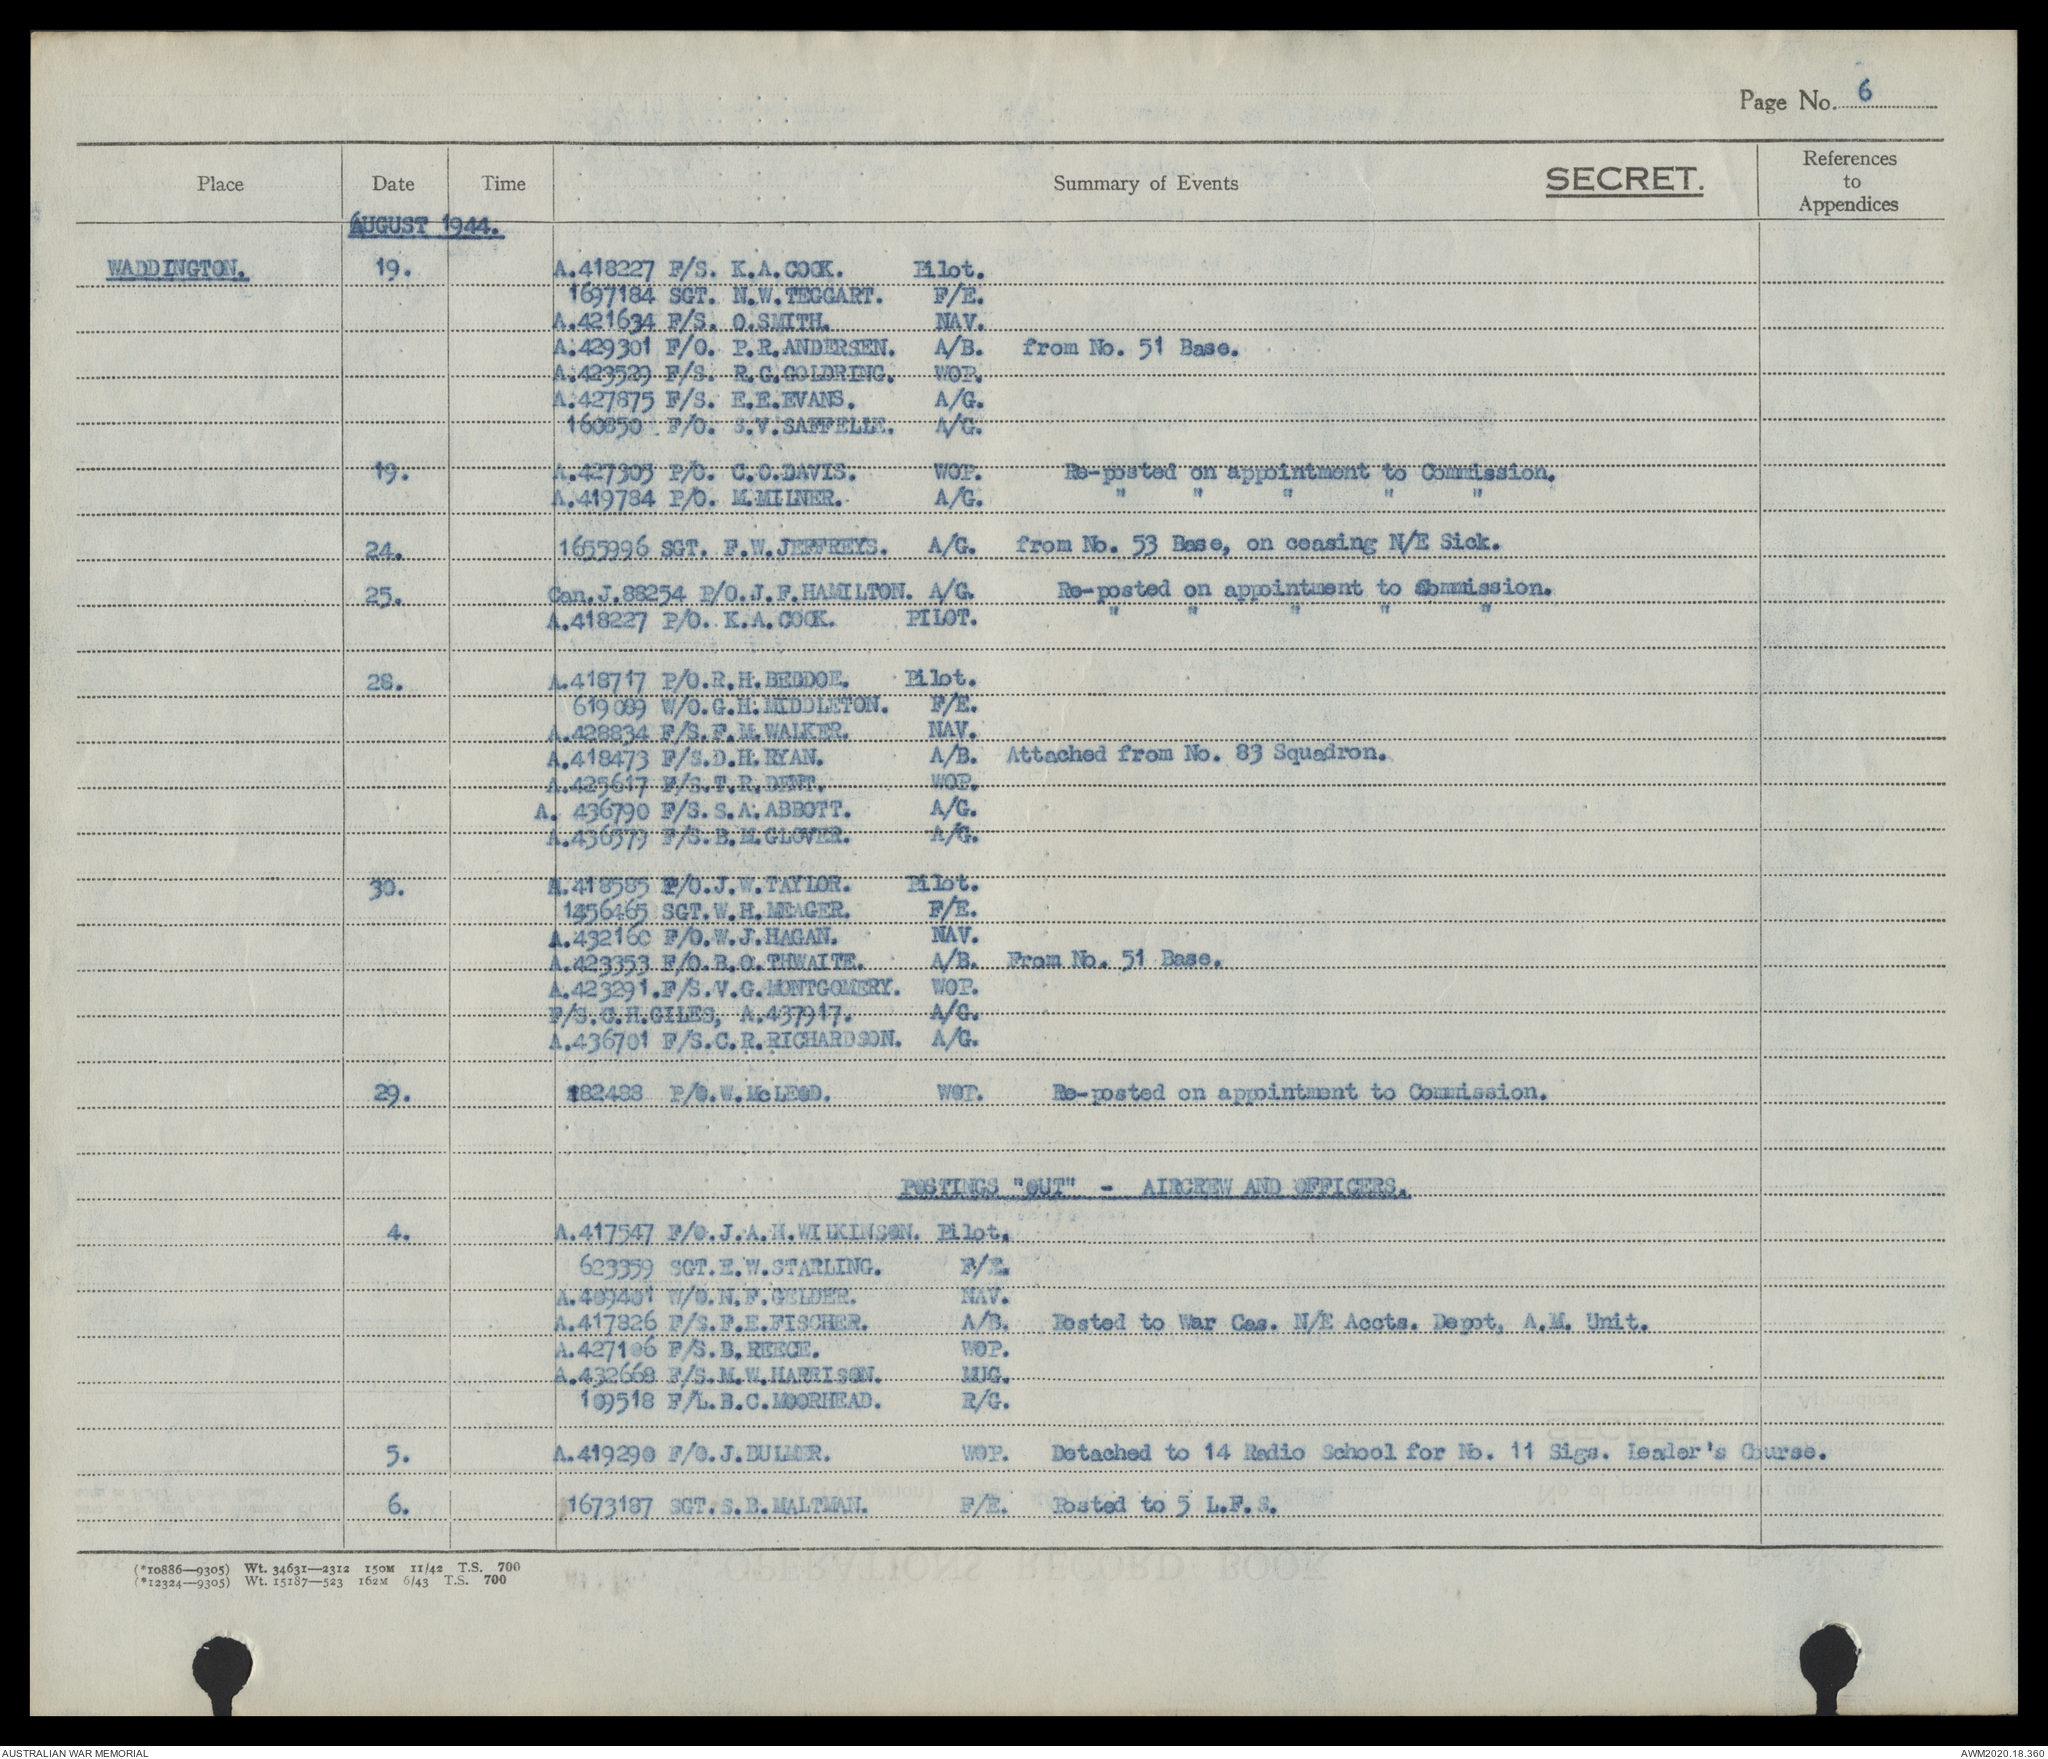 Page No. 6
Place Date Time Summary of Events SECRET. References to Appendices
AUGUST 1944.
WADDINGTON. 19. A.418227 F/S. K.A.COCK. Pilot.
1697184 SGT. N.W.TEGGART. F/E.
A.421634 F/S. O.SMITH. NAV.
A.429301 F/O. P.R.ANDERSEN. A/B. from No. 51 Base.
A.423529 F/S. R.G.GOLDRING. WOP.
A.427875 F/S. E.E.EVANS. A/G.
160850 F/O. S.V.SAFFELLE. A/G.
19. A.427305 P/O. C.O.DAVIS. WOP. Re-posted on appointment to Commission.
A.419784 P/O. M.MILNER. A/G. " " " " "
24. 1655996 SGT. F.W.JEFFREYS. A/G. from No. 53 Base, on ceasing N/E Sick.
25. Can.J.88254 P/O.J.F.HAMILTON. A/G. Re-posted on appointment to Commission.
A.418227 P/O. K.A.COCK. PILOT. " " " " "
28. A.418717 P/O.R.H.BEDDOE. Pilot.
619089 W/O.G.H.MIDDLETON. F/E.
A.428834 F/S.F.M.WALKER. NAV.
A.418473 F/S.D.H.RYAN. A/B. Attached from No. 83 Squadron.
A.425617 F/S.T.R.DENT. WOP.
A. 436790 F/S.S.A.ABBOTT. A/G.
A.436379 F/S.B.M.GLOVER. A/G.
30. A.418585 P/O.J.W.TAYLOR. Pilot.
1456465 SGT.W.H.MEAGER. F/E.
A.432160 F/O.W.J.HAGAN. NAV.
A.423353 F/O.B.O.THWAITE. A/B. From No. 51 Base.
A.423291.F/S.V.G.MONTGOMERY. WOP.
F/S.C.H.GILES, A.437917. A/G.
A.436701 F/S.C.R.RICHARDSON. A/G.
29. 182488 P/O.W.McLEOD. WOP. Re-posted on appointment to Commission.
POSTINGS "OUT" - AIRCREW AND OFFICERS.
4. A.417547 F/O.J.A.H.WILKINSON. Pilot.
623359 SGT.E.W.STARLING. F/E.
A.409401 W/O.N.F.GELDER. NAV.
A.417826 F/S.F.E.FISCHER. A/B. Posted to War Cas. N/E Accts. Depot, A.M. Unit.
A.427106 F/S.B.REECE. WOP.
A.432668 F/S.M.W.HARRISON. MUG.
109518 F/L.B.C.MOORHEAD. R/G.
5. A.419290 F/O.J.BULMER. WOP. Detached to 14 Radio School for No. 11 Sigs. Leader's Course.
6. 1673187 SGT.S.B.MALTMAN. F/E. Posted to 5 L.F.S.
(*10886—9305) Wt. 34631—2312 150M 11/42 T.S. 700
(*12324—9305) Wt. 15187—523 162M 6/43 T.S. 700
AUSTRALIAN WAR MEMORIAL AWM2020.18.360